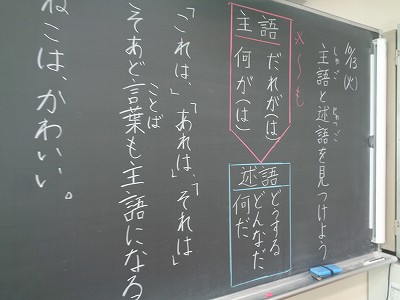 10/13(火)
しゅご じゅつご
主語と述語を見つけよう
×〜も
主語
だれが(は)
何が(は)
述語
どうする
どんなだ
何だ
「これは、」「あれは、」「それは」
ことば
そあど言葉も主語になる
ねこは、かわいい。